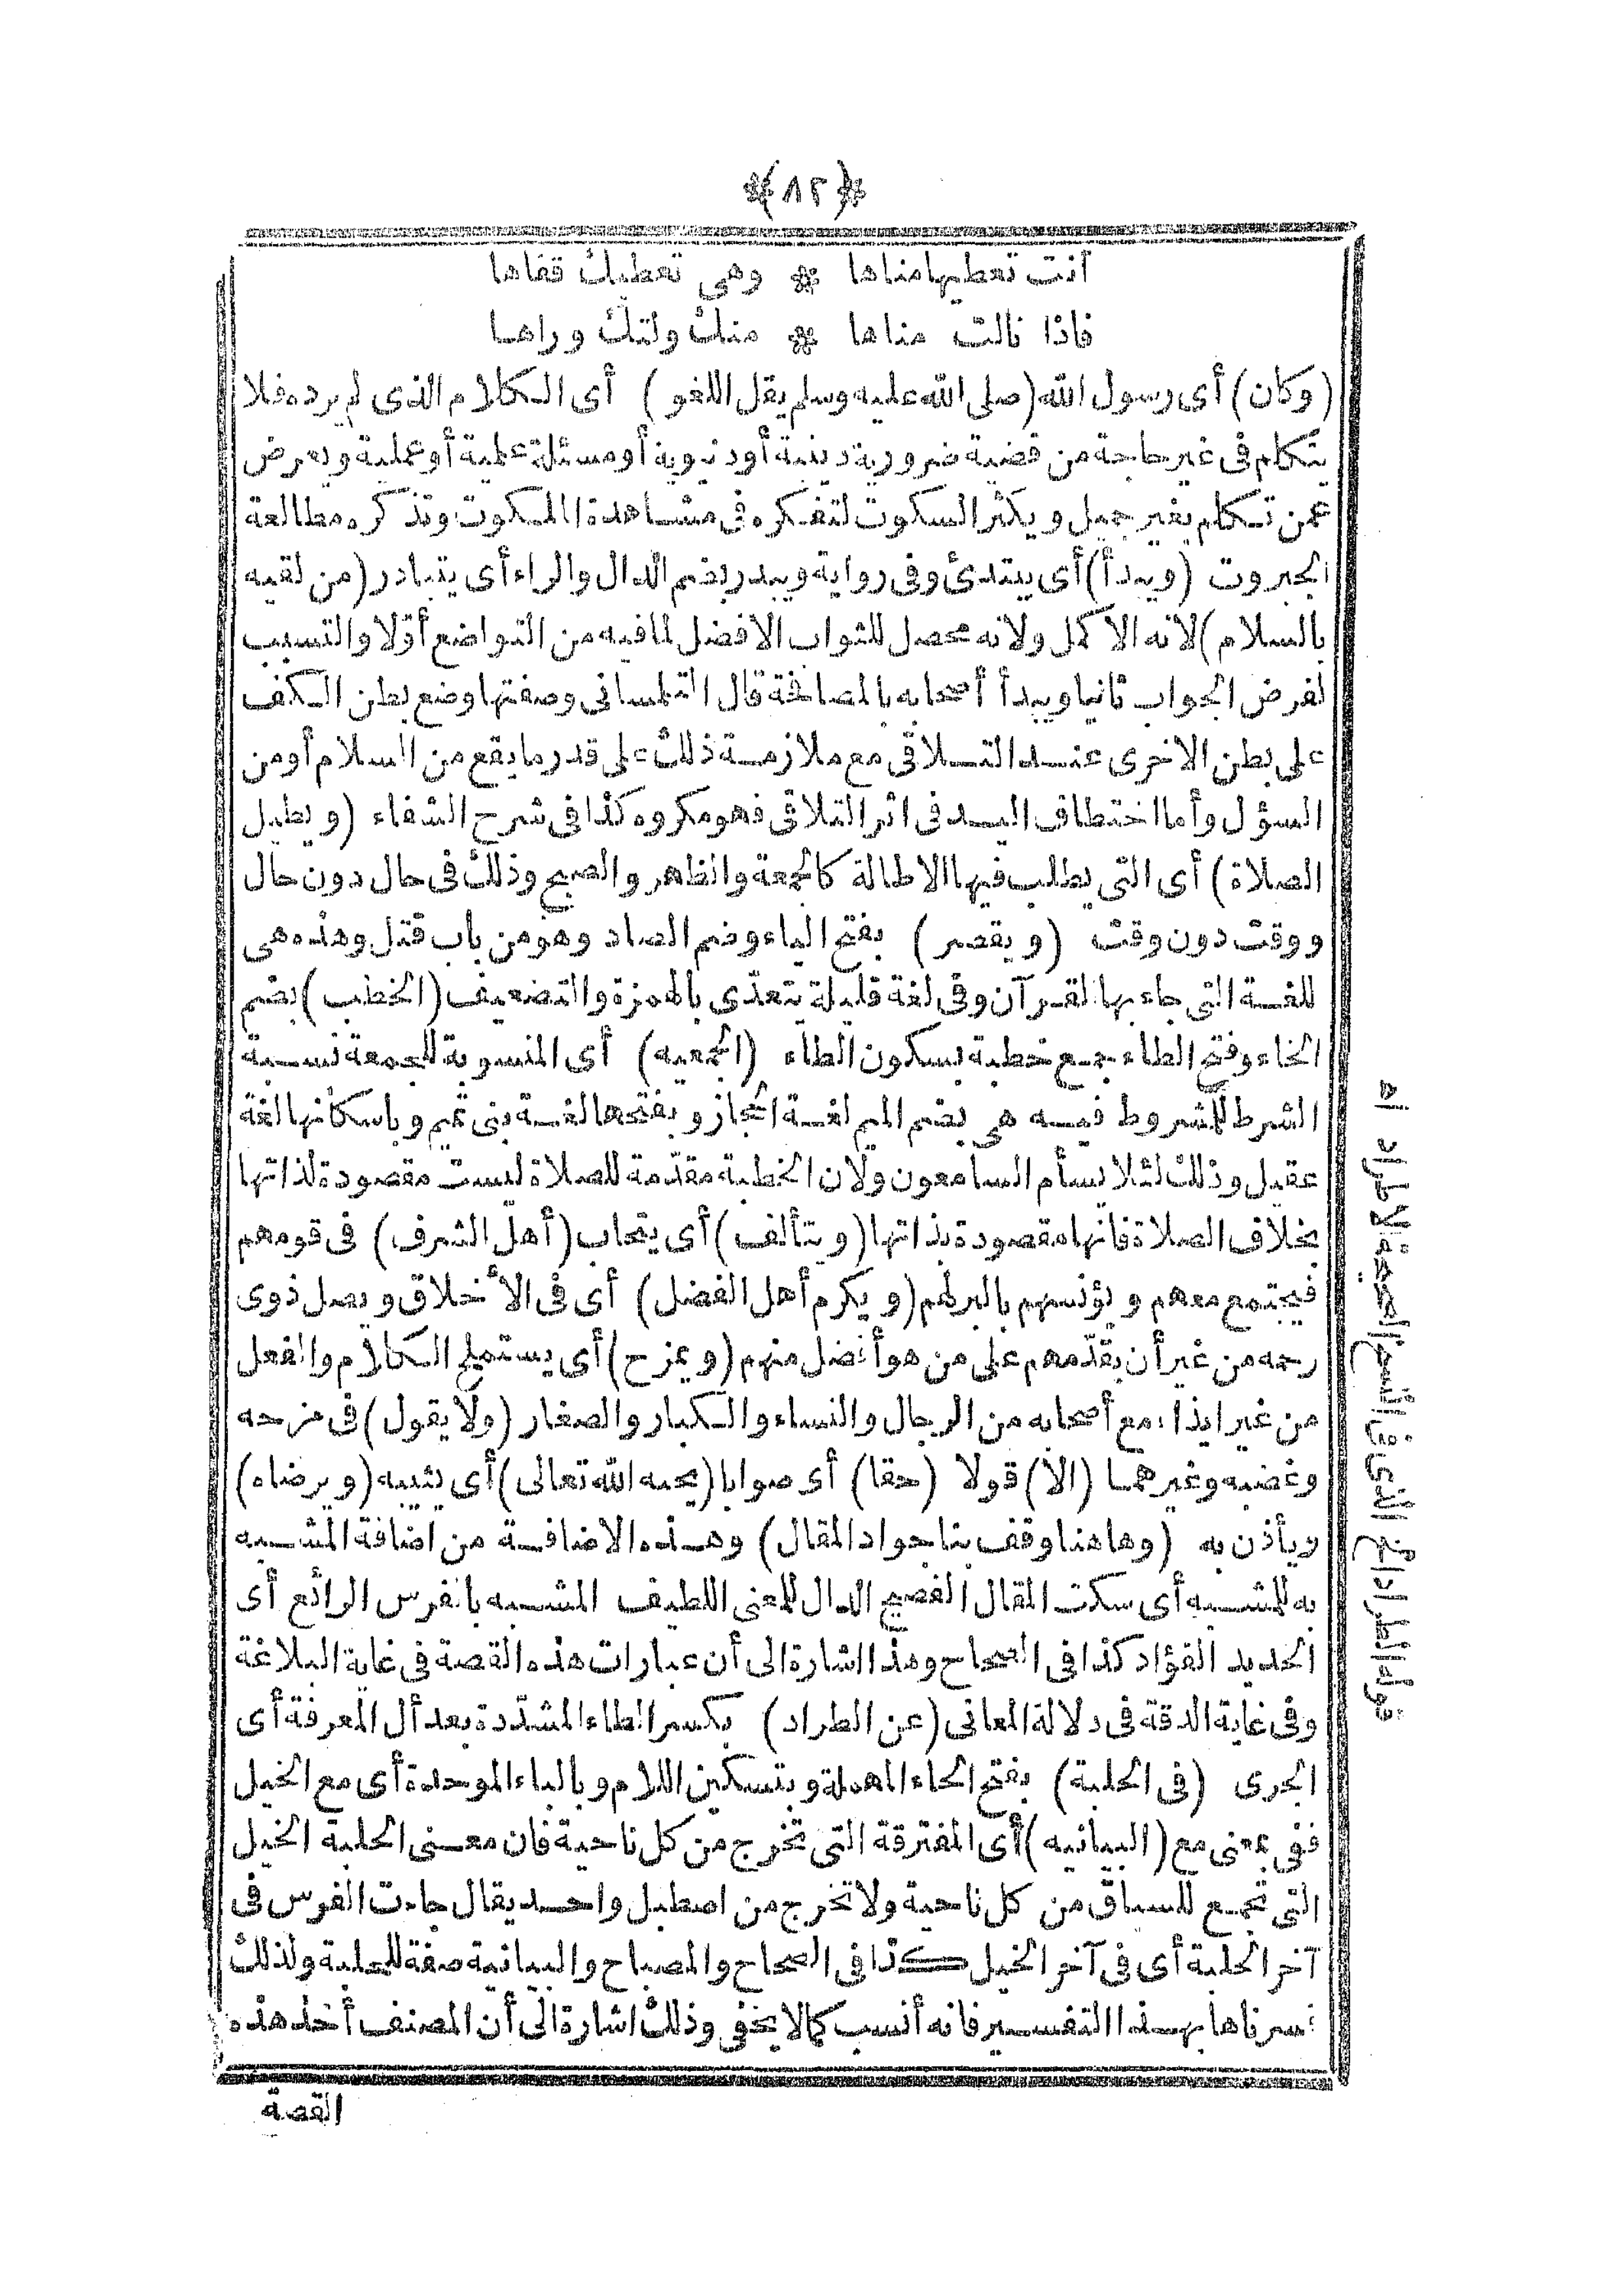 ﴿٨٢﴾
أنت تعطيها مناها * وهى تعطيك قفاها
فاذا نالت مناها * منك ولتك وراها
(وكان) أى رسول الله (صلى الله عليه وسلم يقل اللغو) أى الكلام الذى لم يرده فلا
يتكلم فى غير حاجة من قضية ضرورية دينية أو دنيوية أو مسئلة علمية أو عملية ويعرض
عمن تكلم بغير جميل ويكثر السكوت لتفكره فى مشاهدة الملكوت وتذكره مطالعة
الجبروت (ويبدأ) أى يبتدئ وفى رواية ويبدر بضم الدال والراء أى يتبادر (من لقيه
بالسلام) لانه الاكمل ولانه محصل للثواب الافضل لما فيه من التواضع أوّلا والتسبب
لفرض الجواب ثانيا ويبدأ أصحابه بالمصافحة قال التلمسانى وصفتها وضع بطن الكف
على بطن الاخرى عند التلاقى مع ملازمة ذلك على قدر ما يقع من السلام أو من
السؤل وأما اختطاف اليد فى اثر التلاقى فهو مكروه كذا فى شرح الشفاء (ويطيل
الصلاة) أى التى يطلب فيها الاطالة كالجمعة والظهر والصبح وذلك فى حال دون حال
ووقت دون وقت (ويقصر) بفتح الياء وضم الصاد وهو من باب قتل وهذه هى
للغة التى جاء بها القرآن وفى لغة قليلة يتعدّى بالهمزة والتضعيف (الخطب) بضم
الخاء وفتح الطاء جمع خطبة بسكون الطاء (الجمعيه) أى المنسوبة للجمعة نسبة
الشرط للمشروط فيه هى بضم الميم لغة الحجاز وبفتحها لغة بنى تميم وباسكانها لغة
عقيل وذلك لئلا يسأم السامعون ولان الخطبة مقدّمة للصلاة ليست مقصودة لذاتها
بخلاف الصلاة فانها مقصودة بذاتها (ويتألف) أى يتحاب (أهل الشرف) فى قومهم
فيجتمع معهم ويؤنسهم بالبر لهم (ويكرم أهل الفضل) أى فى الأخلاق ويصل ذوى
رحمه من غير أن يقدّمهم على من هو أفضل منهم (ويمزح) أى يستملح الكلام والفعل
من غير ايذاء مع أصحابه من الرجال والنساء والكبار والصغار (ولا يقول) فى مزحه
وغضبه وغيرهما (الا) قولا (حقا) أى صوابا (يحبه الله تعالى) أى يثيبه (ويرضاه)
ويأذن به (وهاهنا وقف بنا جواد المقال) وهذه الاضافة من اضافة المشبه
به للمشبه أى سكت المقال الفصيح الدال للمعنى اللطيف المشبه بالفرس الرائع أى
الحديد الفؤاد كذا فى الصحاح وهذا اشارة الى أن عبارات هذه القصة فى غاية البلاغة
وفى غاية الدقة فى دلالة المعانى (عن الطراد) بكسر الطاء المشدّدة بعد أل المعرفة أى
الجرى (فى الحلبة) بفتح الحاء المهملة وبتسكين اللام وبالباء الموحدة أى مع الخيل
ففى بمعنى مع (البيانيه) أى المفترقة التى تخرج من كل ناحية فان معنى الحلبة الخيل
التى تجمع للسباق من كل ناحية ولا تخرج من اصطبل واحد يقال جاءت الفرس فى
آخر الحلبة أى فى آخر الخيل كذا فى الصحاح والمصباح والبيانية صفة للحلبة ولذلك
فسرناها بهذا التفسير فانه أنسب كما لا يخفى وذلك اشارة الى أن المصنف أخذ هذه
القصة
قوله الطراد الخ الذى فى النسخ الصحيحة الاطراد اه